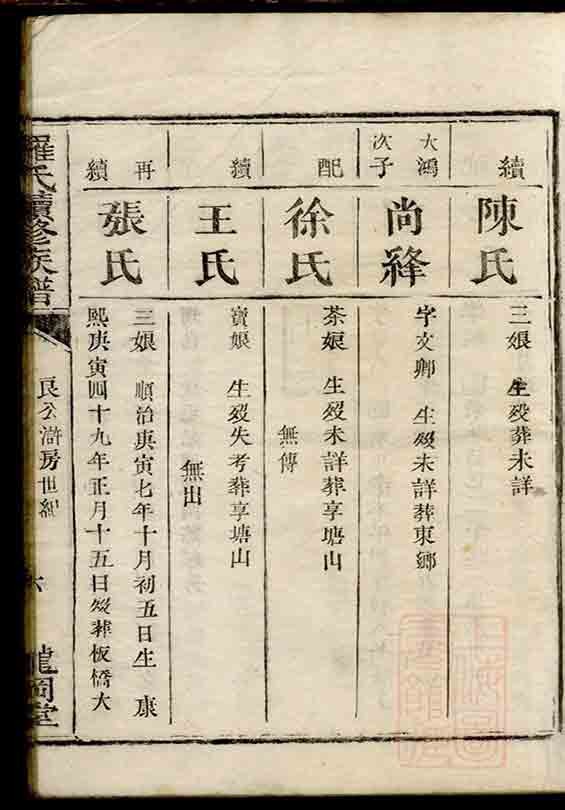 續
陳氏
三娘 生歿葬未詳
大鴻
次子
尚絳
字文卿 生歿未詳葬東鄉
配
徐氏
茶娘 生歿未詳葬享塘山
無傳
續
王氏
寶娘 生歿失考葬享塘山
無出
再
續
張氏
三娘 順治庚寅七年十月初五日生 康
熙庚寅四十九年正月十五日歿葬板橋大
羅氏續修族譜
良公滸房世紀
六
龍岡堂